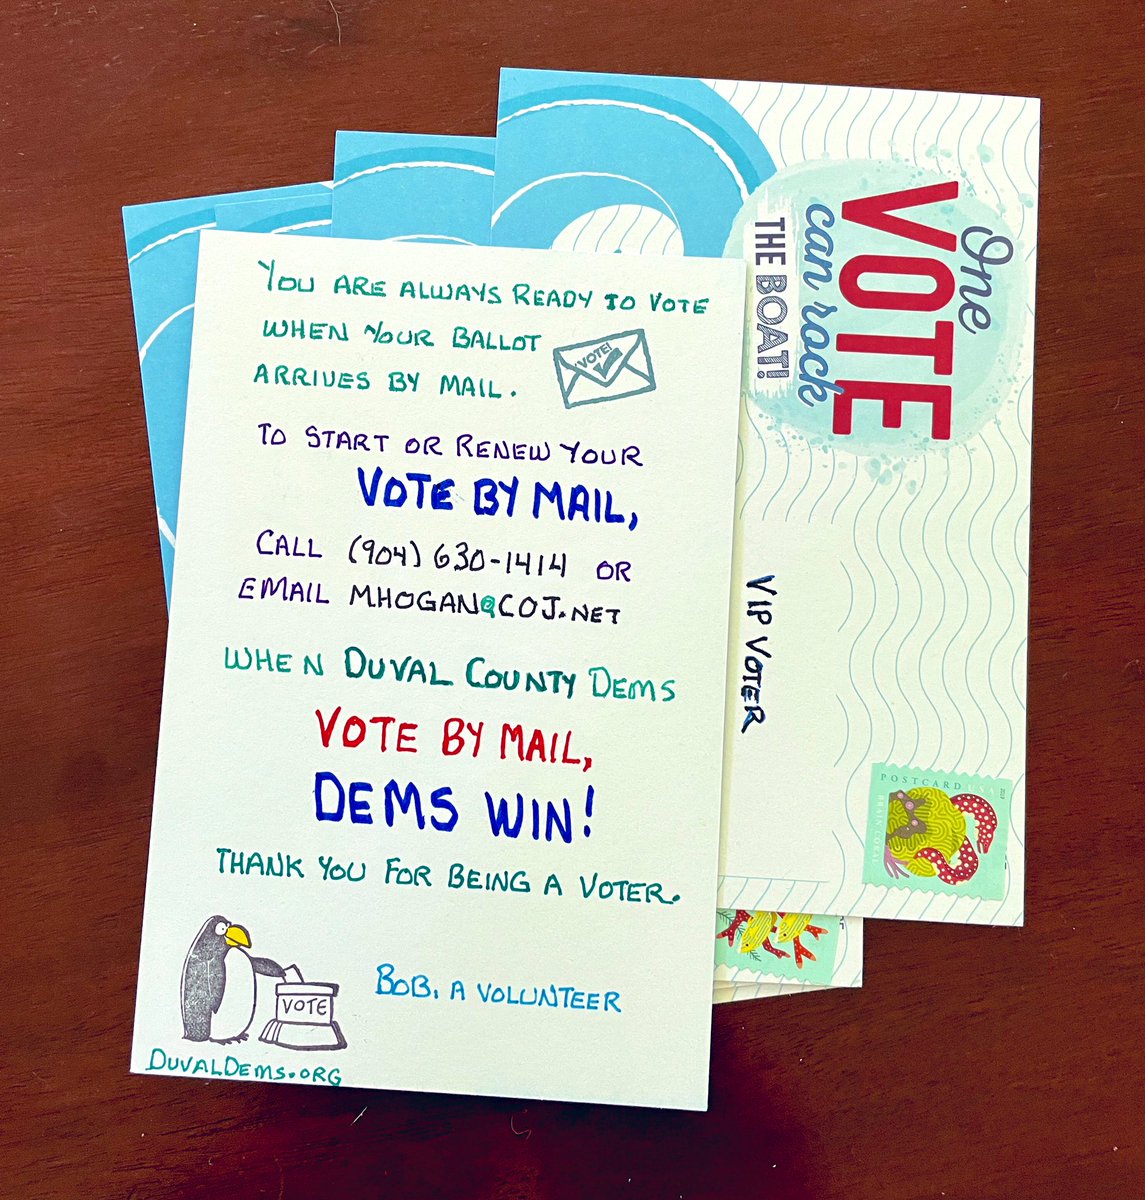 YOU ARE ALWAYS READY TO VOTE
WHEN YOUR BALLOT
ARRIVES BY MAIL.
VOTE!
TO START OR RENEW YOUR
VOTE BY MAIL,
CALL (904) 630-1414 OR
EMAIL MHOGAN@COJ.NET
WHEN DUVAL COUNTY DEMS
VOTE BY MAIL,
DEMS WIN!
THANK YOU FOR BEING A VOTER.
VOTE
BOB, A VOLUNTEER
DUVALDEMS.ORG
One
VOTE
can rock
THE BOAT!
VIP VOTER
POSTCARD USA
BRAIN CORAL